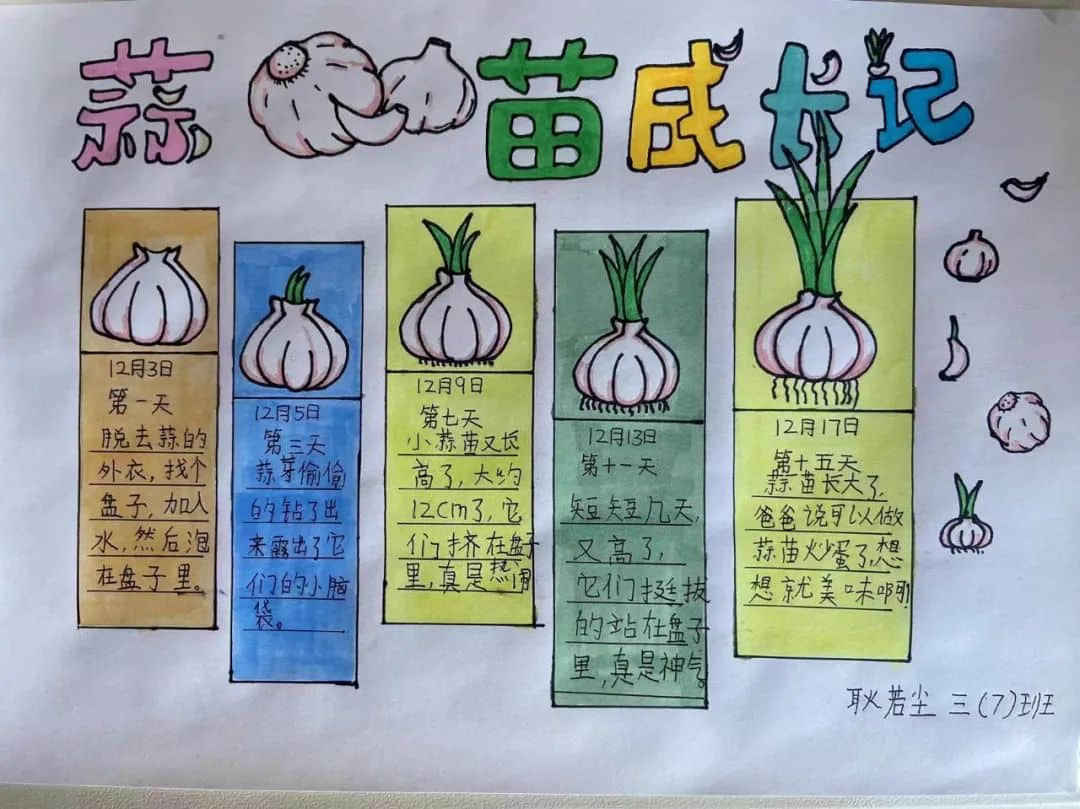 蒜苗成长记
12月3日
第一天
脱去蒜的
外衣,找个
盘子,加入
水,然后泡
在盘子里。
12月5日
第三天
蒜芽偷偷
的钻了出
来露出了它
们的小脑
袋。
12月9日
第七天
小蒜苗又长
高了,大约
12cm了,它
们挤在盘子
里,真是热闹
12月13日
第十一天
短短几天,
又高了,
它们挺拔
的站在盘子
里,真是神气。
12月17日
第十五天
蒜苗长大了,
爸爸说可以做
蒜苗炒蛋了,想
想就美味啊!
耿若尘 三(7)班